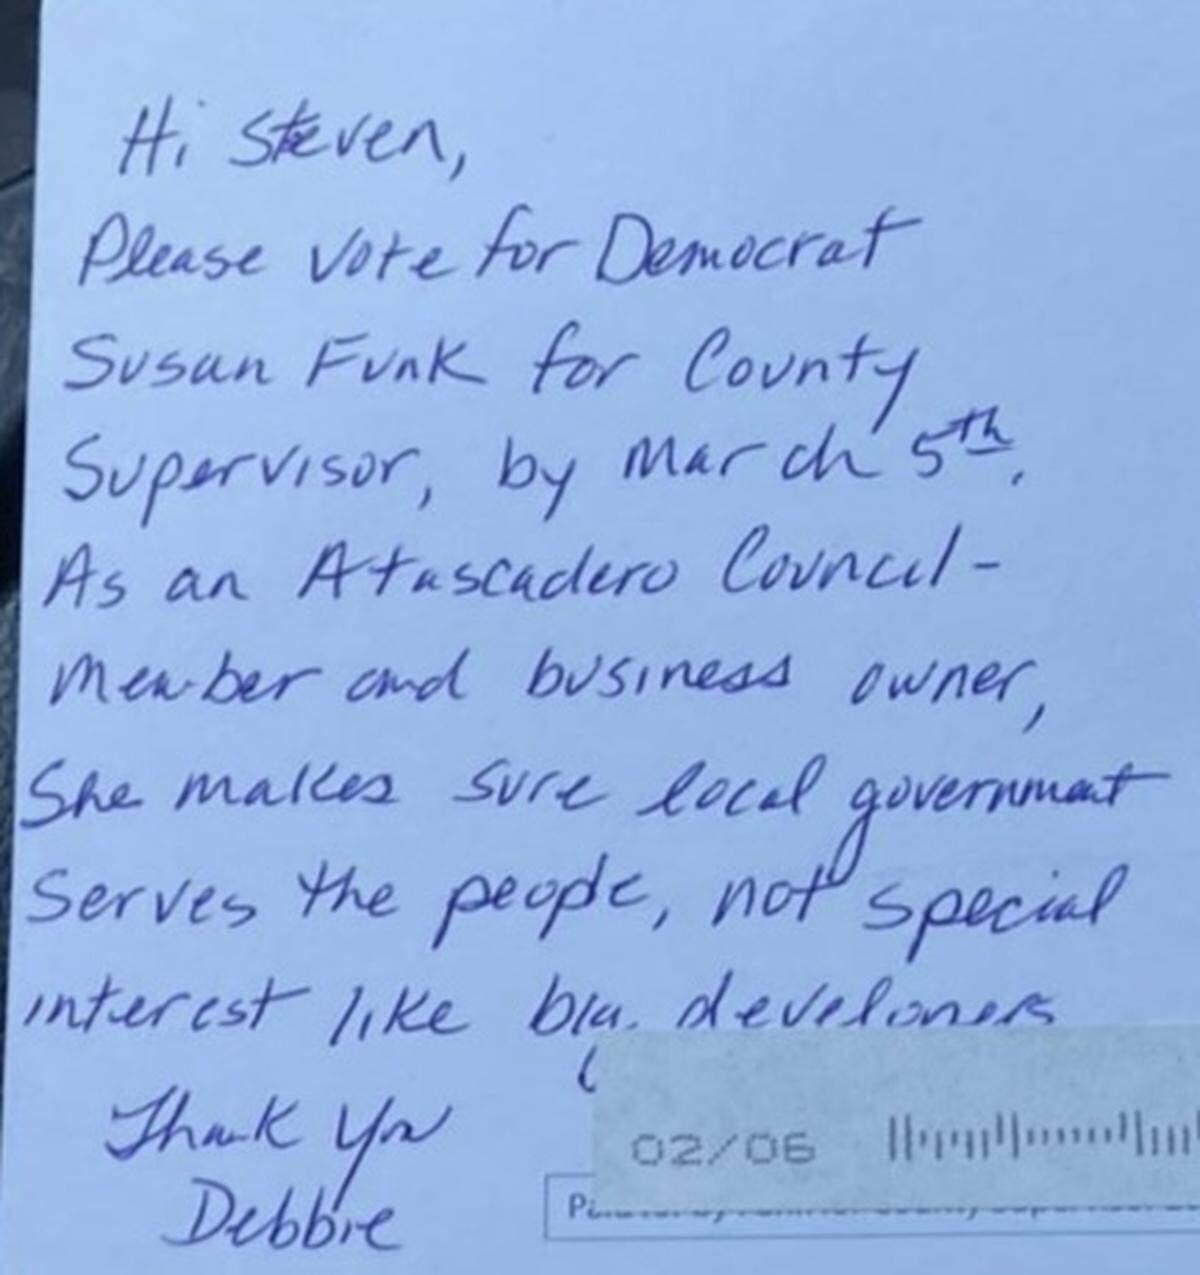 Hi Steven,
Please vote for Democrat
Susan Funk for County
Supervisor, by March 5th.
As an Atascadero Council-
member and business owner,
She makes sure local government
Serves the people, not special
interest like big developers
Thank you
Debbie
02/06